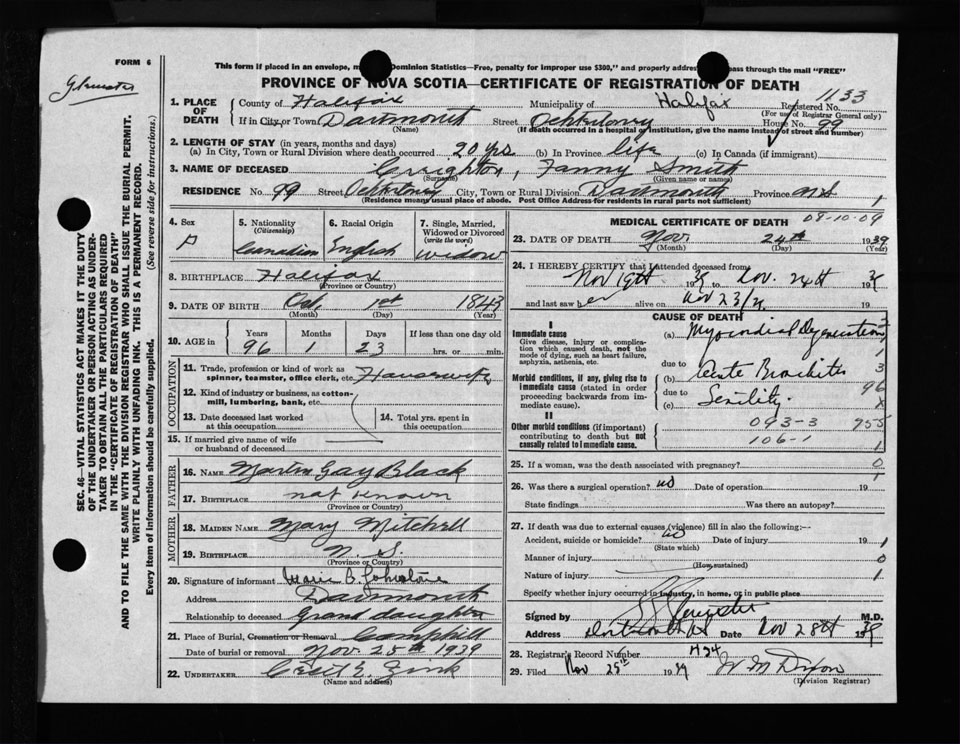 FORM 6
This form if placed in an envelope, Dominion Statistics—Free, penalty for improper use $300," and properly through the mail "FREE"
PROVINCE OF NOVA SCOTIA—CERTIFICATE OF REGISTRATION OF DEATH
1133
1. PLACE OF DEATH County of Halifax Municipality of Halifax Registered No.
(For use of Registrar General only)
If in City or Town Dartmouth Street House No. 99
(Name) (If death occurred in a hospital or institution, give the name instead of street and number)
2. LENGTH OF STAY (in years, months and days)
(a) In City, Town or Rural Division where death occurred 20 yrs (b) In Province life (c) In Canada (if immigrant)
3. NAME OF DECEASED Creighton, Fanny Smith
(Surname) (Given name or names)
RESIDENCE No. 99 Street City, Town or Rural Division Dartmouth Province N.S. 1
(Residence means usual place of abode. Post Office Address for residents in rural parts not sufficient)
4. Sex 5. Nationality (Citizenship) 6. Racial Origin 7. Single, Married, Widowed or Divorced (write the word)
Canadian English widow
8. BIRTHPLACE Halifax
(Province or Country)
9. DATE OF BIRTH Oct. 1st 1843
(Month) (Day) (Year)
10. AGE in Years Months Days If less than one day old
96 1 23 hrs. or min.
OCCUPATION
11. Trade, profession or kind of work as spinner, teamster, office clerk, etc. Housewife
12. Kind of industry or business, as cotton-mill, lumbering, bank, etc.
13. Date deceased last worked at this occupation 14. Total yrs. spent in this occupation
15. If married give name of wife or husband of deceased
FATHER
16. NAME Martin Gay Black
17. BIRTHPLACE not known
(Province or Country)
MOTHER
18. MAIDEN NAME Mary Mitchell
19. BIRTHPLACE N. S.
(Province or Country)
20. Signature of informant Marie C. Johnstone
Address Dartmouth
Relationship to deceased Grand daughter
21. Place of Burial, Cremation or Removal Camphill
Date of burial or removal Nov. 25th 1939
22. UNDERTAKER Cecil E. Zink
(Name and address)
MEDICAL CERTIFICATE OF DEATH 08-10-09
23. DATE OF DEATH Nov. 24th 1939
(Month) (Day) (Year)
24. I HEREBY CERTIFY that I attended deceased from
Nov 19th 1939 Nov. 24th 1939
and last saw her alive on Nov 23/39 19
CAUSE OF DEATH
I
Immediate cause
Give disease, injury or complication which caused death, not the mode of dying, such as heart failure, asphyxia, asthenia, etc.
(a) Myocardial Degeneration
due to
Morbid conditions, if any, giving rise to immediate cause (stated in order proceeding backwards from immediate cause).
(b) Acute Bronchitis 3
due to 96
(c) Senility.
II
Other morbid conditions (if important) contributing to death but not causally related to immediate cause.
093-3 955
106-1 1
25. If a woman, was the death associated with pregnancy? 0
26. Was there a surgical operation? no Date of operation
State findings Was there an autopsy?
27. If death was due to external causes (violence) fill in also the following:—
Accident, suicide or homicide? no Date of injury 19 1
(State which)
Manner of injury 0
(How sustained)
Nature of injury 1
Specify whether injury occurred in industry, in home, or in public place
Signed by M.D.
Address Date Nov 28th 1939
28. Registrar's Record Number 424
29. Filed Nov 25th 1939 W M Dixon
(Division Registrar)
SEC. 46—VITAL STATISTICS ACT MAKES IT THE DUTY
OF THE UNDERTAKER OR PERSON ACTING AS UNDER-
TAKER TO OBTAIN ALL THE PARTICULARS REQUIRED
IN THE "CERTIFICATE OF REGISTRATION OF DEATH"
AND TO FILE THE SAME WITH THE DIVISION REGISTRAR WHO SHALL ISSUE THE BURIAL PERMIT.
WRITE PLAINLY WITH UNFADING INK. THIS IS A PERMANENT RECORD.
Every item of information should be carefully supplied. (See reverse side for instructions.)